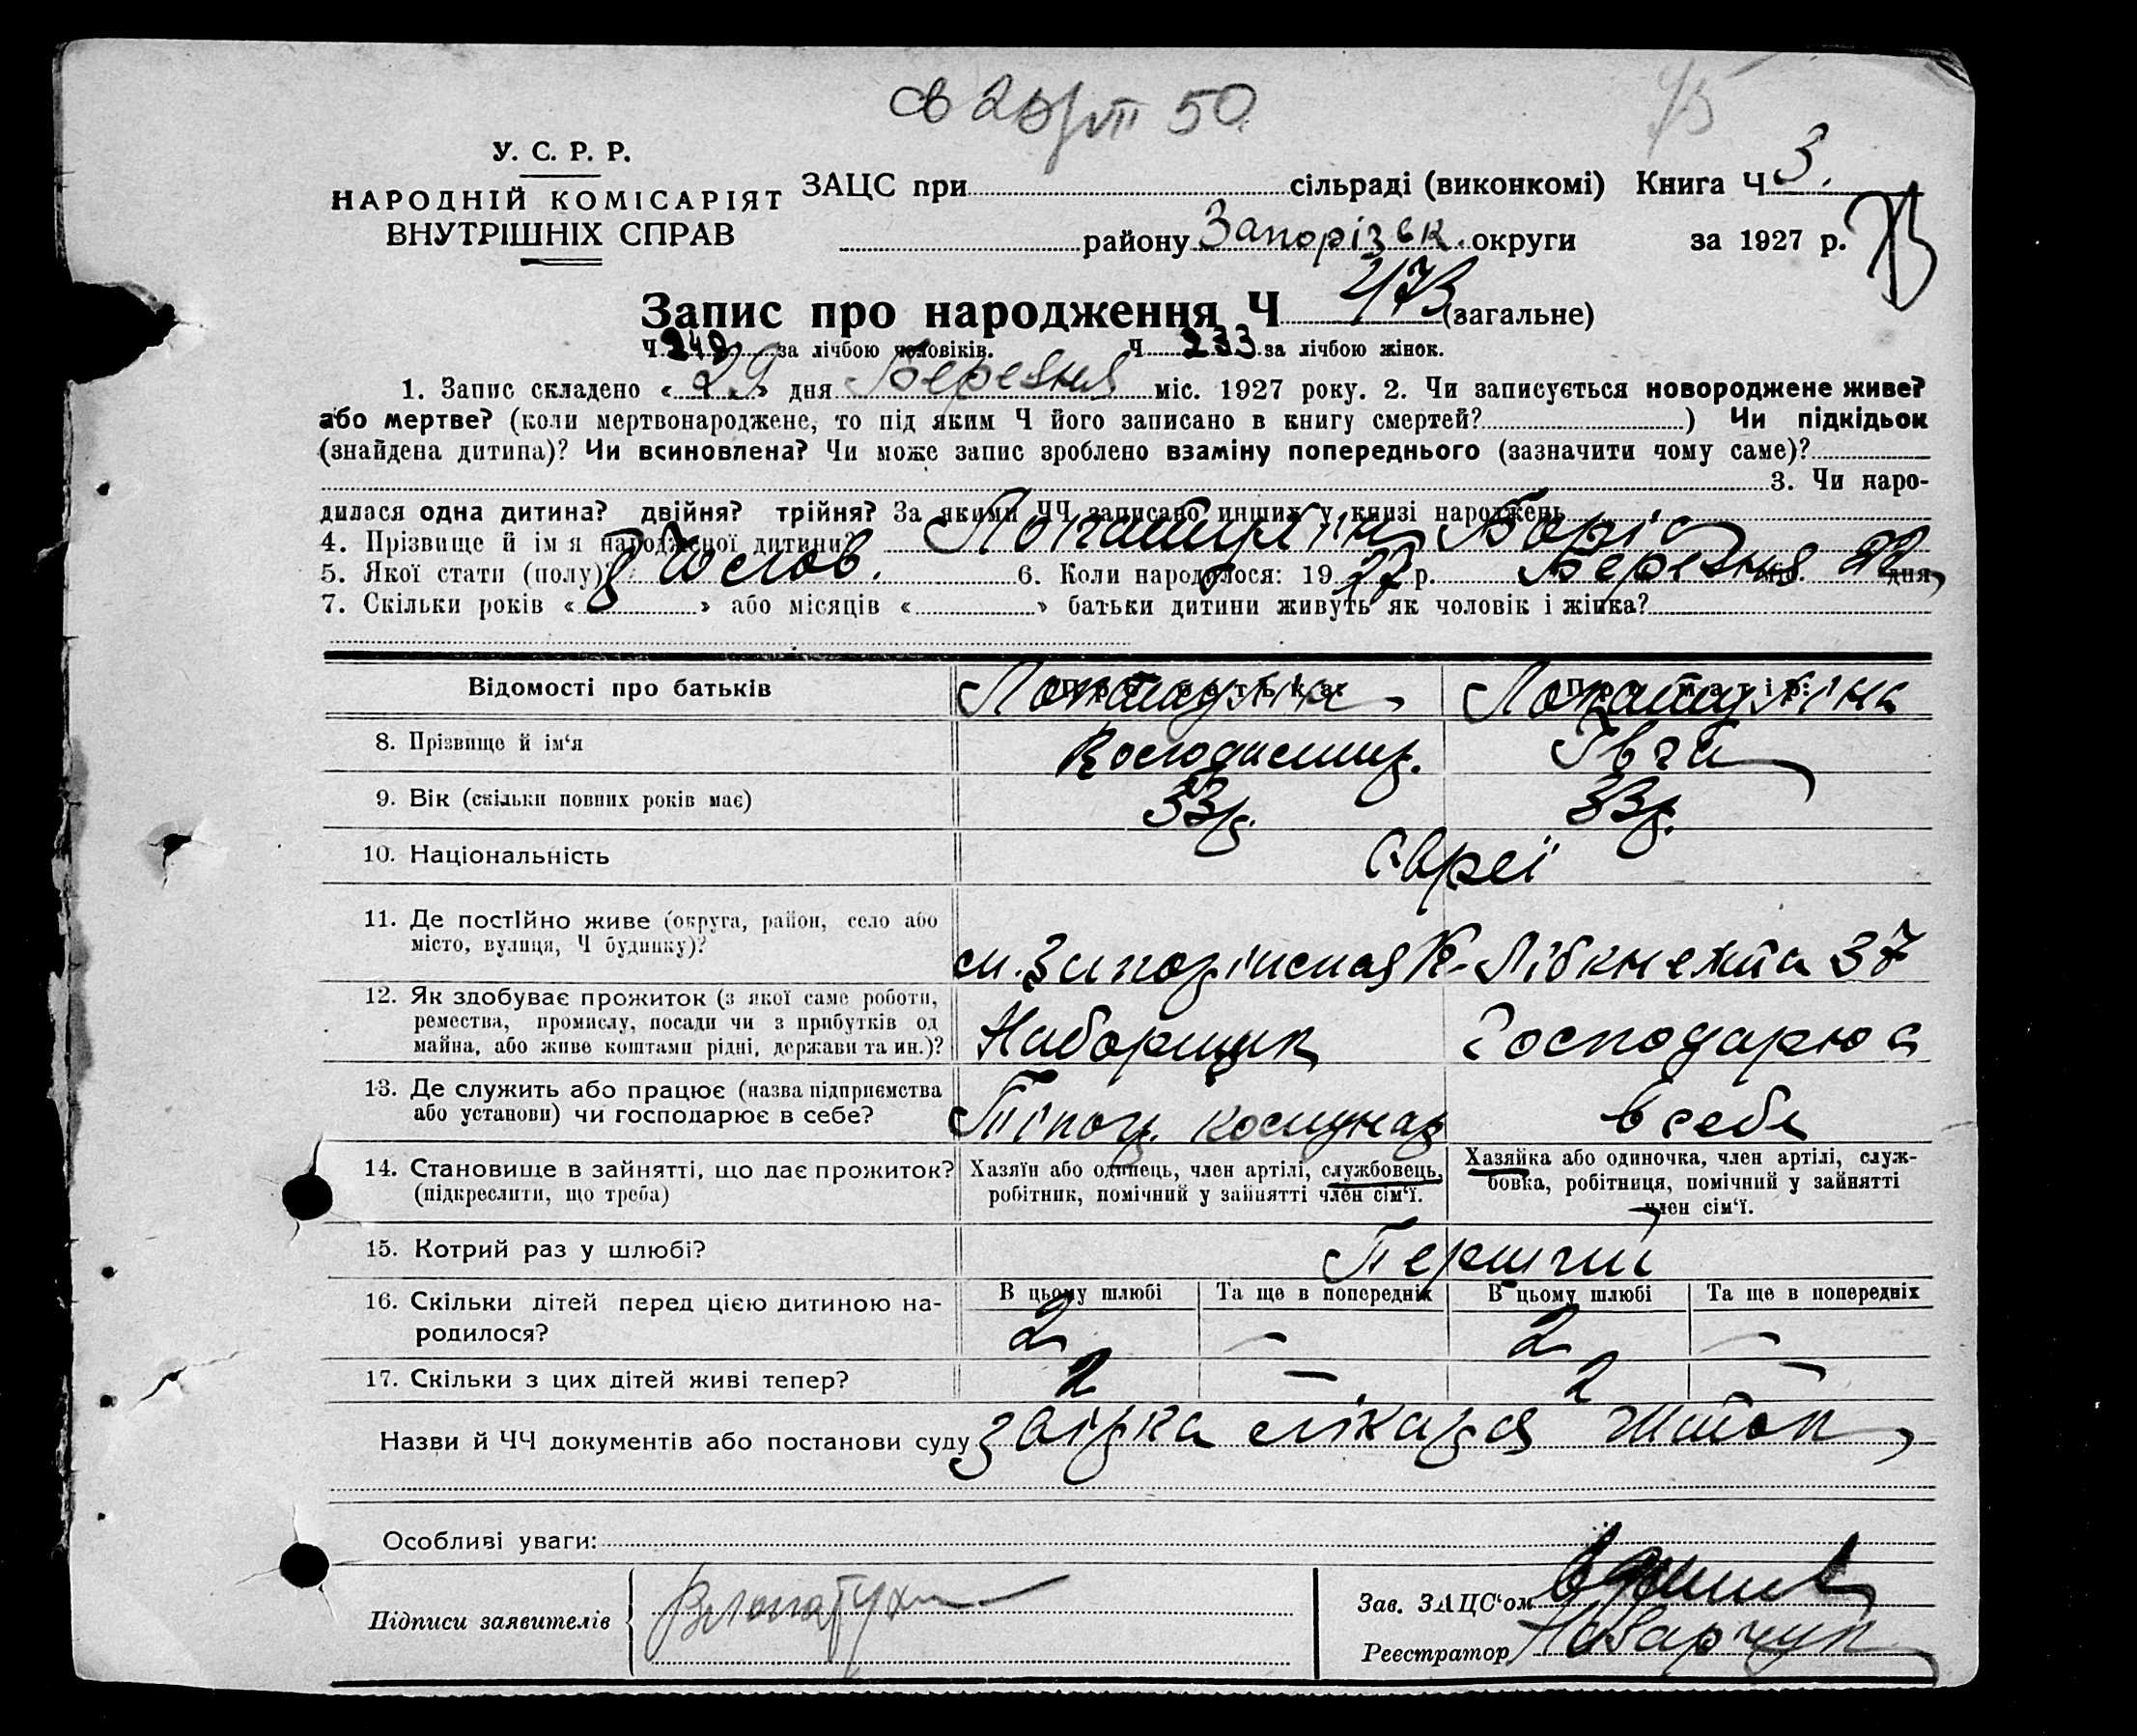 св 28/VII 50
У. С. Р. Р.
НАРОДНІЙ КОМІСАРІЯТ
ВНУТРІШНІХ СПРАВ
ЗАЦС при сільраді (виконкомі) Книга Ч 3.
району Запорізьк. округи за 1927 р.
Запис про народження Ч 473 (загальне)
Ч 240 за лічбою чоловіків. Ч 233 за лічбою жінок.
1. Запис складено « 29 » дня Березня міс. 1927 року. 2. Чи записується новороджене живе?
або мертве? (коли мертвонароджене, то під яким Ч його записано в книгу смертей? ) Чи підкідьок
(знайдена дитина)? Чи всиновлена? Чи може запис зроблено взаміну попереднього (зазначити чому саме)?
3. Чи наро-
дилася одна дитина? двійня? трійня? За якими ЧЧ записано инших у книзі народжень
4. Прізвище й ім я народженої дитини? Лопатухін Боріс
5. Якої стати (полу)? Чолов. 6. Коли народилося: 1927 р. Березня міс. 22 дня
7. Скільки років « 8 » або місяців « » батьки дитини живуть як чоловік і жінка?
Відомості про батьків Про батька: Про матір:
8. Прізвище й ім‘я Лопатухін Володимир. Лопатухіна
9. Вік (скільки повних років має) 33 р. 33 р.
10. Національність євреї
11. Де постійно живе (округа, район, село або
місто, вулиця, Ч будинку)?
м. Запоріжжя К-Лібкнехта 37
12. Як здобуває прожиток (з якої саме роботи,
ремества, промислу, посади чи з прибутків од
майна, або живе коштами рідні, держави та ин.)?
Наборщик Господарює
13. Де служить або працює (назва підприємства
або установи) чи господарює в себе?
Тіпог. комунар в себе
14. Становище в зайнятті, що дає прожиток?
(підкреслити, що треба)
Хазяїн або одинець, член артілі, службовець,
робітник, помічний у зайнятті член сім‘ї.
Хазяйка або одиночка, член артілі, служ-
бовка, робітниця, помічний у зайнятті
член сім‘ї.
15. Котрий раз у шлюбі? Перший
В цьому шлюбі Та ще в попередніх В цьому шлюбі Та ще в попередніх
16. Скільки дітей перед цією дитиною на-
родилося?
2 – 2 –
17. Скільки з цих дітей живі тепер? 2 – 2 –
Назви й ЧЧ документів або постанови суду довідка лікаря
Особливі уваги:
Підписи заявителів ВЛопатухин
Зав. ЗАЦС‘ом
Реєстратор